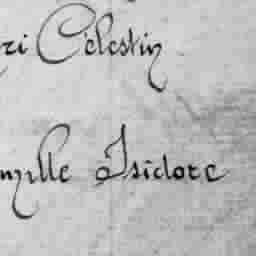 ri Célestin
mylle Isidore